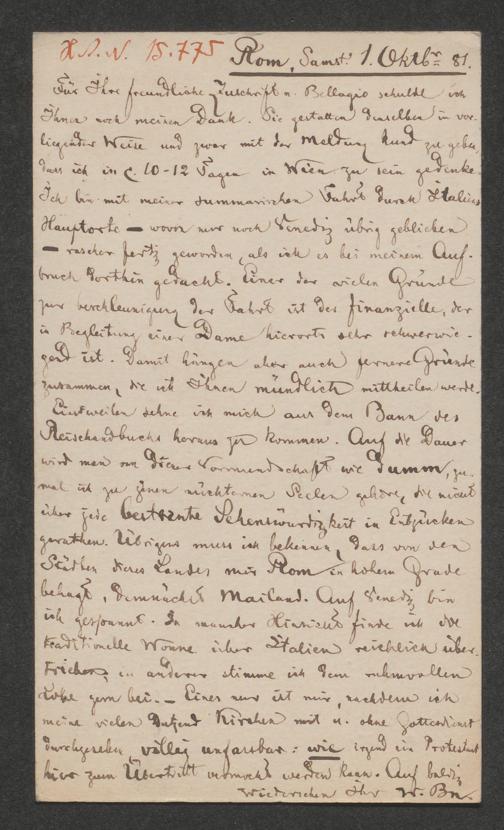 H.I.N. 15.775 Rom, Samst. 1. Oktbr 81.
Für Ihre freundliche Zuschrift n. Bellagio schulde ich
Ihnen noch meinen Dank. Sie gestatten denselben in vor-
liegender Weise und zwar mit der Meldung kund zu geben,
dass ich in c. 10-12 Tagen in Wien zu sein gedenke.
Ich bin mit meiner summarischen Fahrt durch Italiens
Hauptorte – wovon nur noch Venedig übrig geblieben
– rascher fertig geworden, als ich es bei meinem Auf-
bruch dorthin gedacht. Einer der vielen Gründe
zur beschleunigung der Fahrt ist der finanzielle, der
in Begleitung einer Dame hierorts sehr schwerwie-
gend ist. Damit hängen aber auch fernere Gründe
zusammen, die ich Ihnen mündlich mittheilen werde.
Einstweilen sehne ich mich aus dem Bann des
Reisehandbuchs heraus zu kommen. Auf die Dauer
wird man von dieser Vormundschaft wie dumm, zu-
mal ich zu jenen nüchternen Seelen gehöre, die nicht
über jede besternte Sehenswürdigkeit in Entzücken
gerathen. Übrigens muss ich bekennen, dass von den
Städten dieses Landes mir Rom in hohem Grade
behagt, demnächst Mailand. Auf Venedig bin
ich gespannt. In mancher Hinsicht finde ich die
traditionelle Wonne über Italien reichlich über-
trieben, in anderer stimme ich dem ruhmvollen
Lobe gern bei. – Eines nur ist mir, nachdem ich
meine vielen Dutzend Kirchen mit u. ohne Gottesdienst
durchgesehen völlig unfassbar: wie irgend ein Protestant
hier zum Übertritt vermocht werden kann. Auf baldig
Wiedersehen Ihr W. Bn.